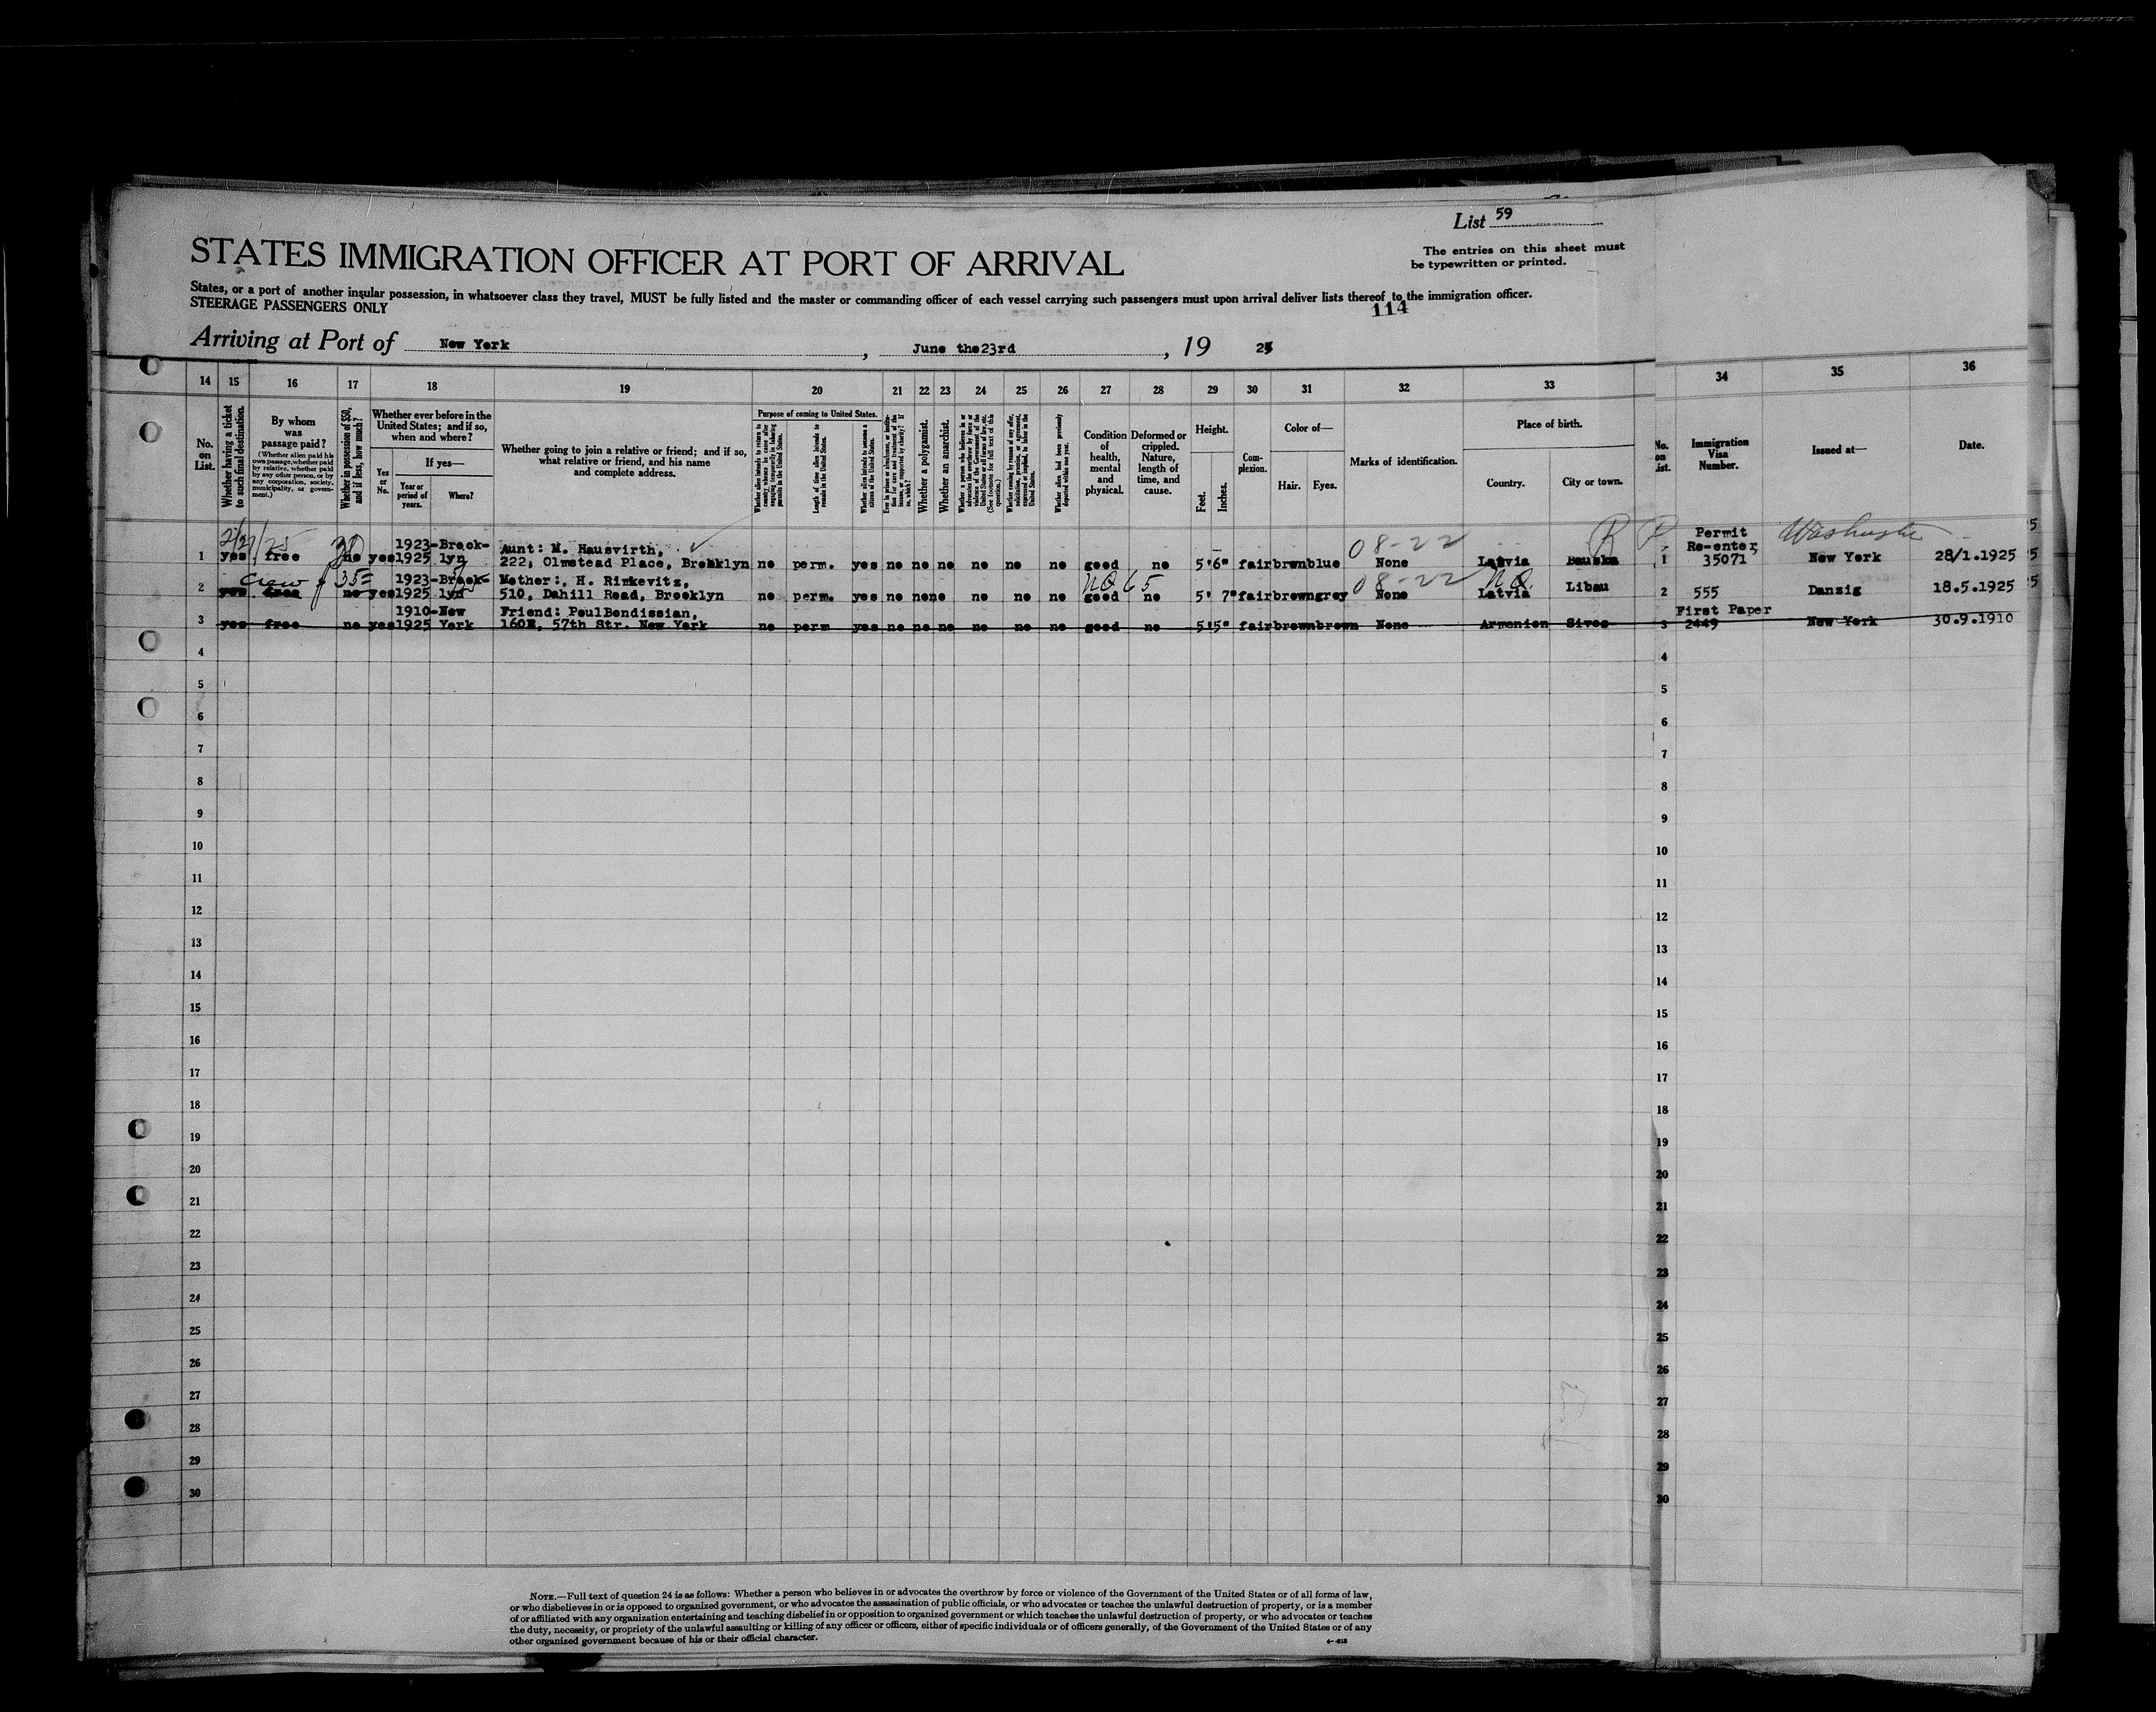 List 59
The entries on this sheet must
be typewritten or printed.
STATES IMMIGRATION OFFICER AT PORT OF ARRIVAL
States, or a port of another insular possession, in whatsoever class they travel, MUST be fully listed and the master or commanding officer of each vessel carrying such passengers must upon arrival deliver lists thereof to the immigration officer.
STEERAGE PASSENGERS ONLY
114
Arriving at Port of New York, June the 23rd, 19 25
14 15 16 17 18 19 20 21 22 23 24 25 26 27 28 29 30 31 32 33 34 35 36
No. on List.
Whether having a ticket to such final destination.
By whom was passage paid?
(Whether alien paid his own passage, whether paid by relative, whether paid by any other person, or by any corporation, society, municipality, or government.)
Whether in possession of $50, and if less, how much?
Whether ever before in the United States; and if so, when and where?
Yes or No.
If yes—
Year or period of years.
Where?
Whether going to join a relative or friend; and if so, what relative or friend, and his name and complete address.
Purpose of coming to United States.
Whether alien intends to return to country whence he came after engaging temporarily in laboring pursuits in the United States.
Length of time alien intends to remain in the United States.
Whether alien intends to become a citizen of the United States.
Whether a polygamist.
Whether an anarchist.
Whether alien had been previously deported within one year.
Condition of health, mental and physical.
Deformed or crippled. Nature, length of time, and cause.
Height.
Feet.
Inches.
Complexion.
Color of—
Hair. Eyes.
Marks of identification.
Place of birth.
Country.
City or town.
No. on List.
Immigration Visa Number.
Issued at—
Date.
2/27/25 08-22 R P Permit Washington
1 yes free no yes 1923-1925 Brook-lyn Aunt: M. Hausvirth, 222, Olmstead Place, Brooklyn no perm. yes no no no no no no good no 5'6" fair brwn blue None Latvia Bauska 1 Re-enter 35071 New York 28/1.1925
Crew 35= NO 65 08-22 NQ
2 yes free no yes 1923-1925 Brook-lyn Mother:, H. Rimkevitz, 510, Dahill Road, Brooklyn no perm. yes no no no no no no good no 5' 7" fair brown grey None Latvia Libau 2 555 Danzig 18.5.1925
3 yes free no yes 1910-1925 New York Friend: Paul Bondissian, 160E, 57th Str. New York no perm yes no no no no no no good no 5'5" fair brown brown None Armenien Sivas 3 First Paper 2449 New York 30.9.1910
4 4
5 5
6 6
7 7
8 8
9 9
10 10
11 11
12 12
13 13
14 14
15 15
16 16
17 17
18 18
19 19
20 20
21 21
22 22
23 23
24 24
25 25
26 26
27 27
28 28
29 29
30 30
NOTE.—Full text of question 24 is as follows: Whether a person who believes in or advocates the overthrow by force or violence of the Government of the United States or of all forms of law,
or who disbelieves in or is opposed to organized government, or who advocates the assassination of public officials, or who advocates or teaches the unlawful destruction of property, or is a member
of or affiliated with any organization entertaining and teaching disbelief in or opposition to organized government or which teaches the unlawful destruction of property, or who advocates or teaches
the duty, necessity, or propriety of the unlawful assaulting or killing of any officer or officers, either of specific individuals or of officers generally, of the Government of the United States or of any
other organized government because of his or their official character.